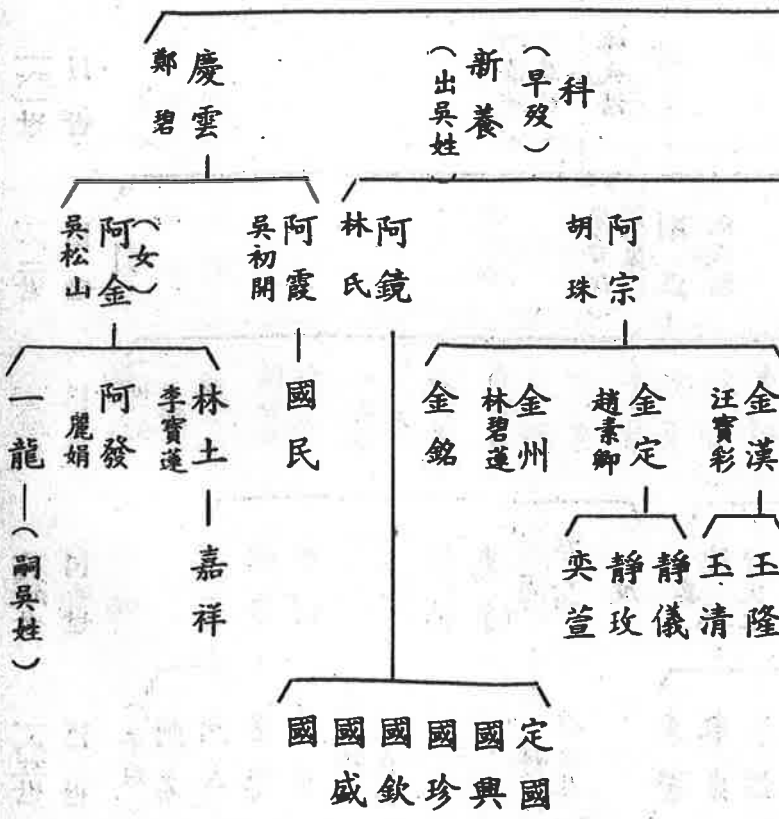 科
（早歿）
新養
（出吳姓）
慶雲
鄭碧
阿宗
胡珠
阿鏡
林氏
阿霞
吳初開
（女）
阿金
吳松山
金漢
汪寶彩
金定
趙素卿
金州
林碧蓮
金銘
國民
林土
李寶蓮
阿發
麗娟
一龍
（嗣吳姓）
玉隆
玉清
靜儀
靜玫
奕萱
嘉祥
定國
國興
國珍
國欽
國盛
國